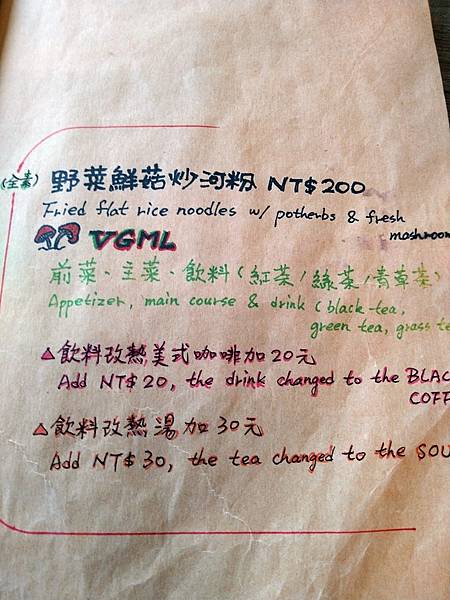 (全素) 野菜鮮菇炒河粉 NT$200
Fried flat rice noodles w/ potherbs & fresh
mashroom
VGML
前菜、主菜、飲料(紅茶/綠茶/青草茶)
Appetizer, main course & drink (black tea,
green tea, grass te
△飲料改熱美式咖啡加20元
Add NT$20, the drink changed to the BLAC
COFF
△飲料改熱湯加30元
Add NT$30, the tea changed to the SOU